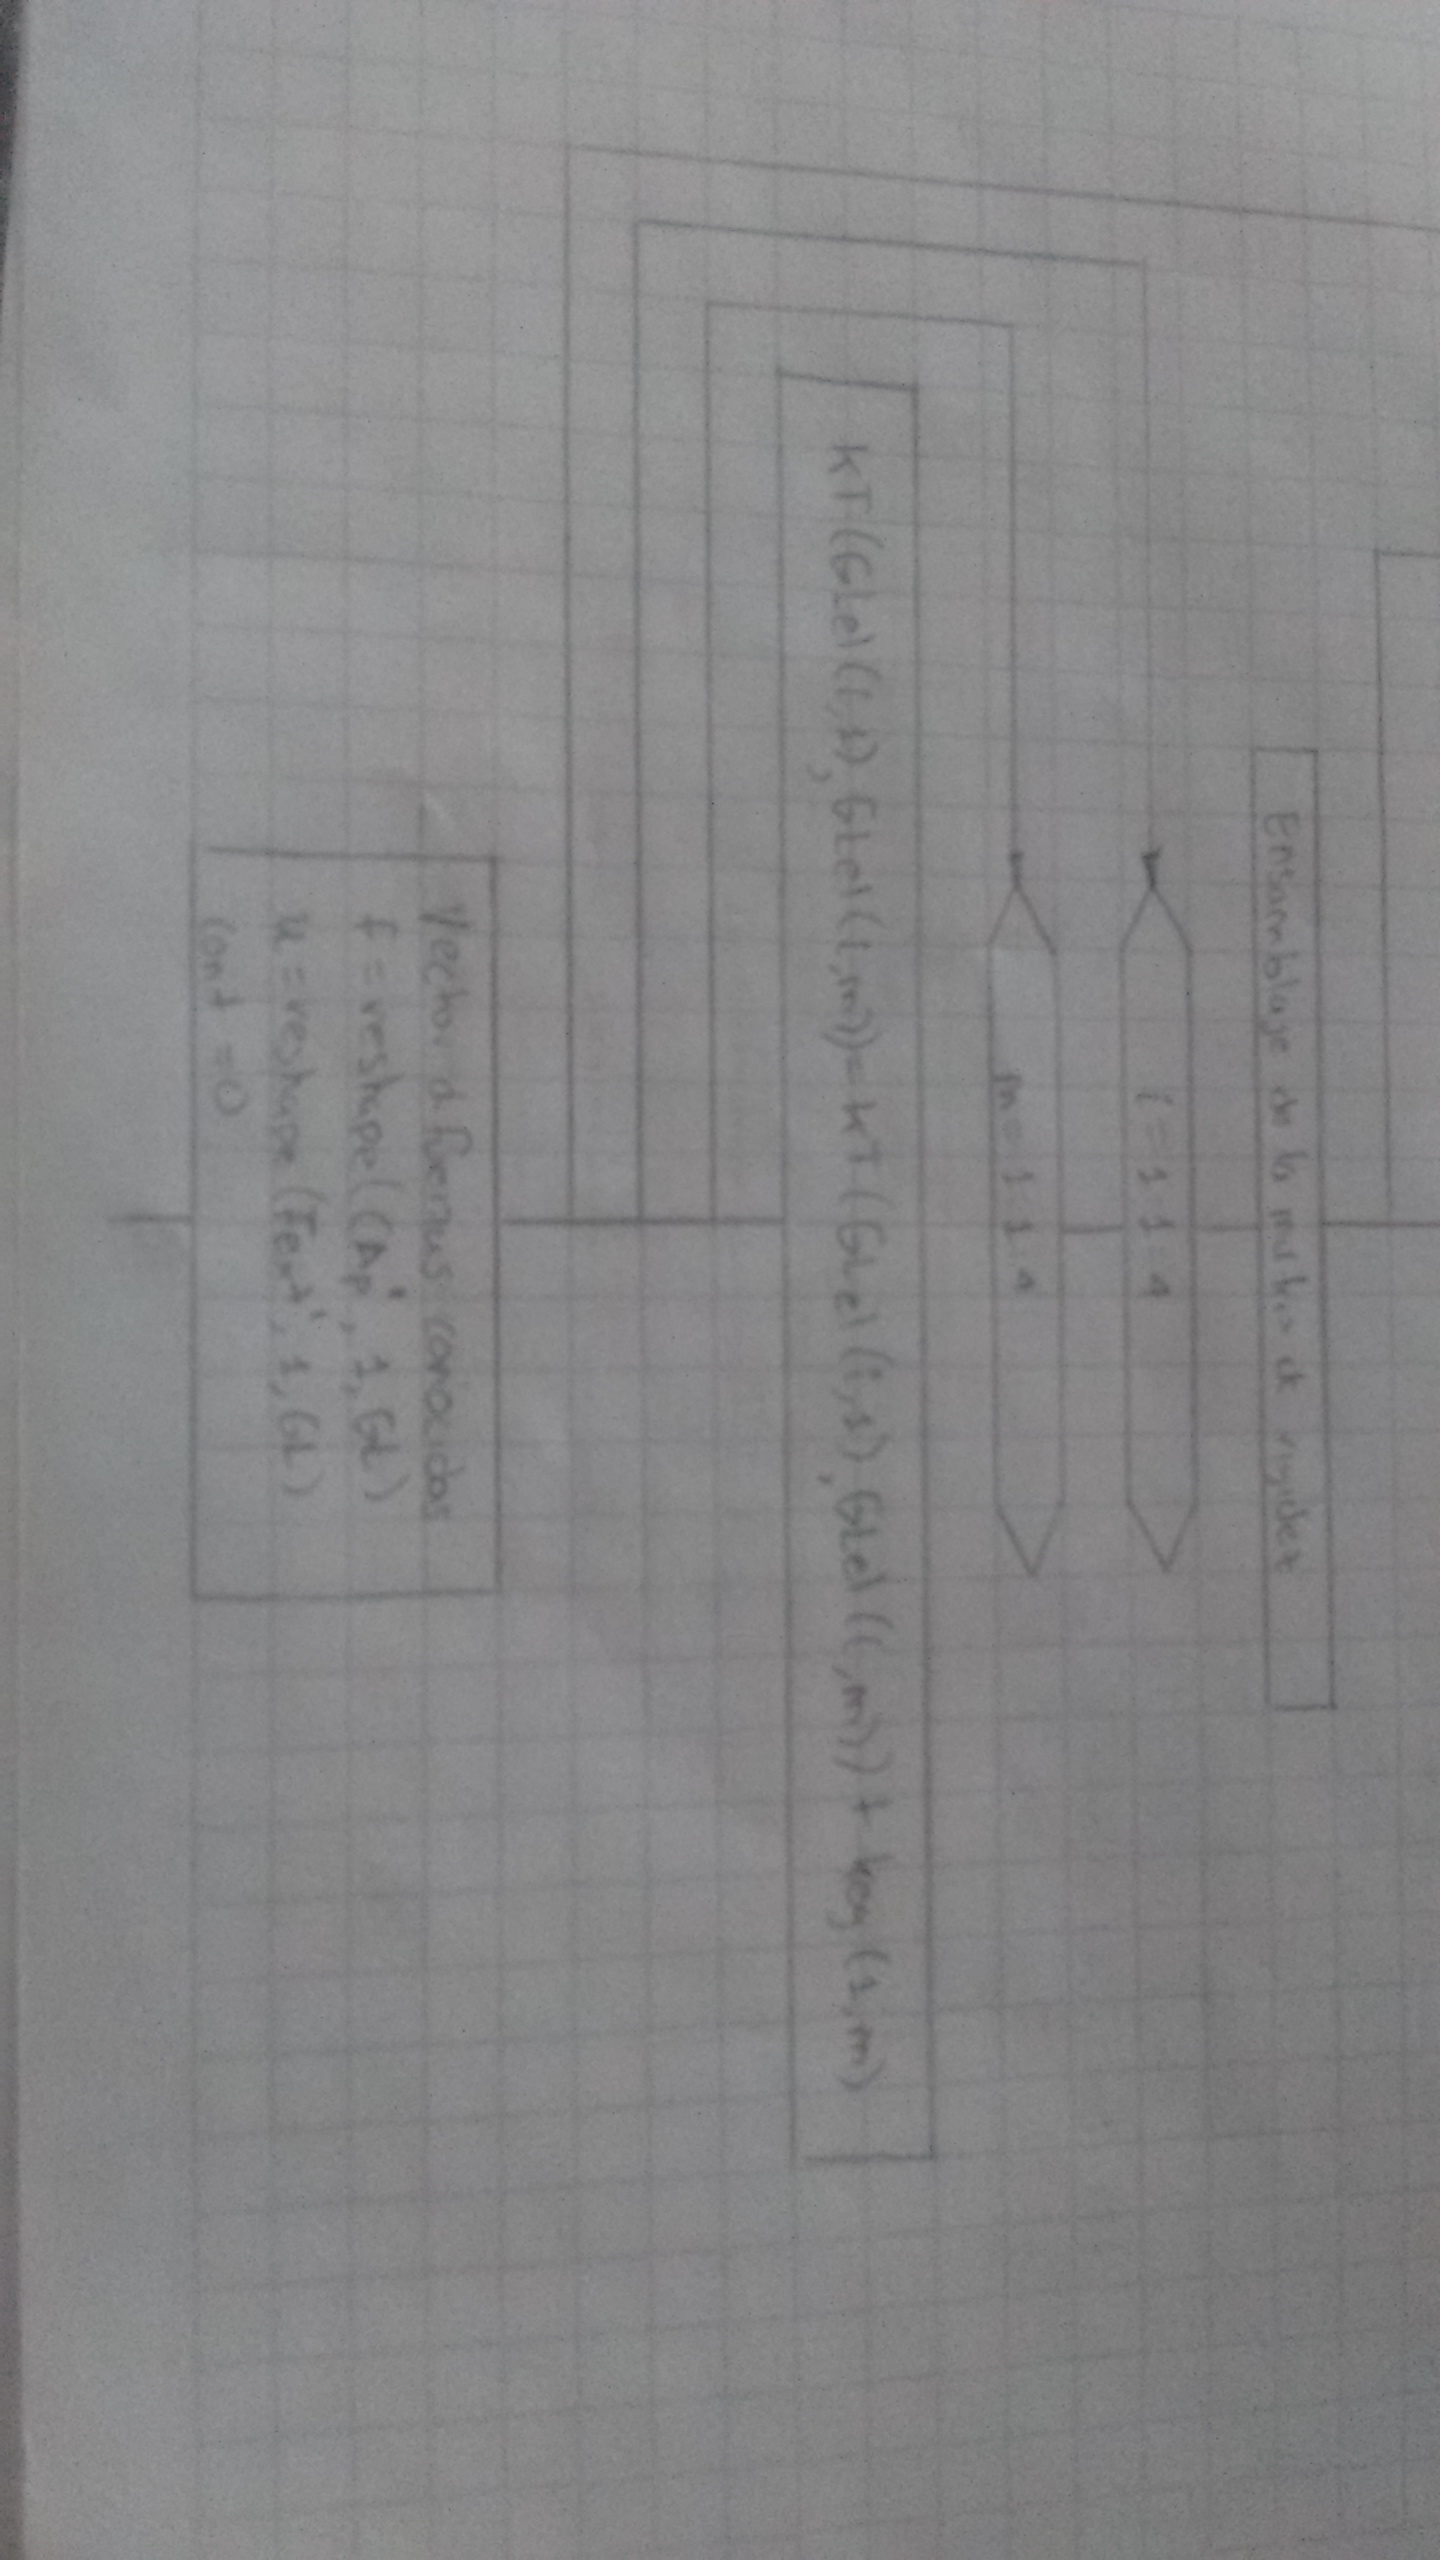 Ensamblaje de la matriz de rigidez
l = 1:1:4
m = 1:1:4
KT(GLel(i,1), GLel(i,m)) = KT(GLel(i,1), GLel(i,m)) + keg(1,m)
Vector d fuerzas conocidas
f = reshape(Ap', 1, GL)
u = reshape(Fext', 1, GL)
cont = 0